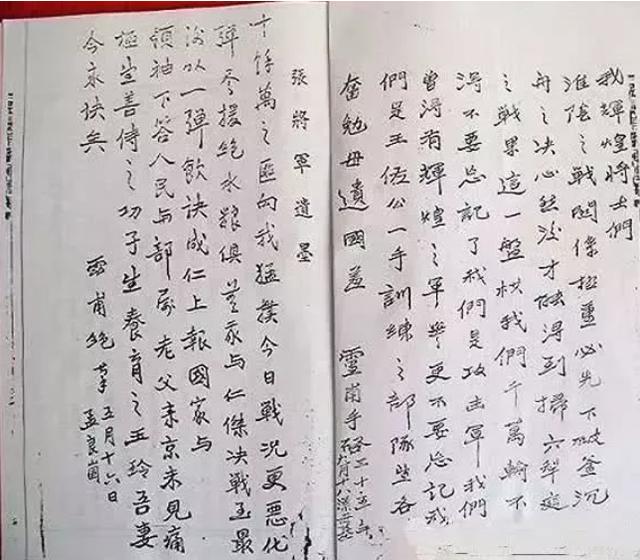 我輝煌將士們
淮陰之戰關係極重必先下破釜沉
舟之決心然後才能得到掃穴犁庭
之戰果這一盤棋我們千萬輸不
得不要忘記了我們是攻击軍我們
曾得有輝煌之軍譽更不要忘記我
們是王佐公一手訓練之部隊望各
奮勉毋遺國羞
靈甫手啓
三十五年
九月十八
張將軍遺墨
十餘萬之匪向我猛撲今日戰況更惡化
彈尽援絕水糧俱 与仁傑決戰至最
後以一彈飲訣成仁上報國家與
領袖下答人民与部屬老父来京未見痛
極望善待之幼子望養育之玉玲吾妻
今永訣矣
靈甫絕筆
五月十六日
孟良崮